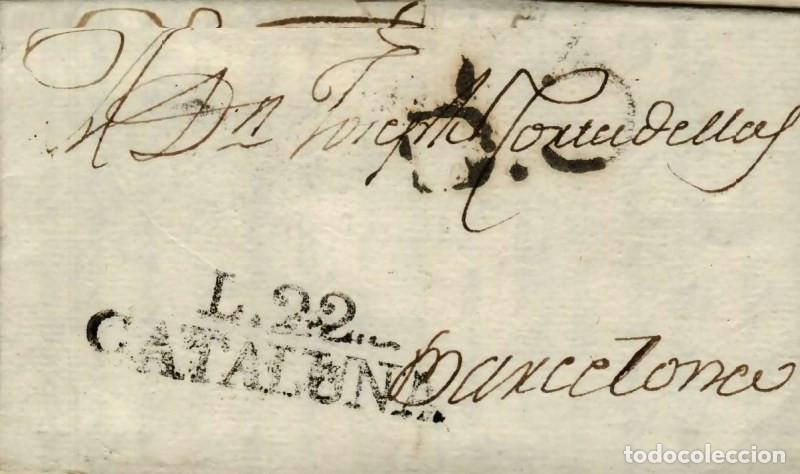 A Dn Joseph Cortadellas
L.22
CATALUÑA
Barcelona
todocoleccion